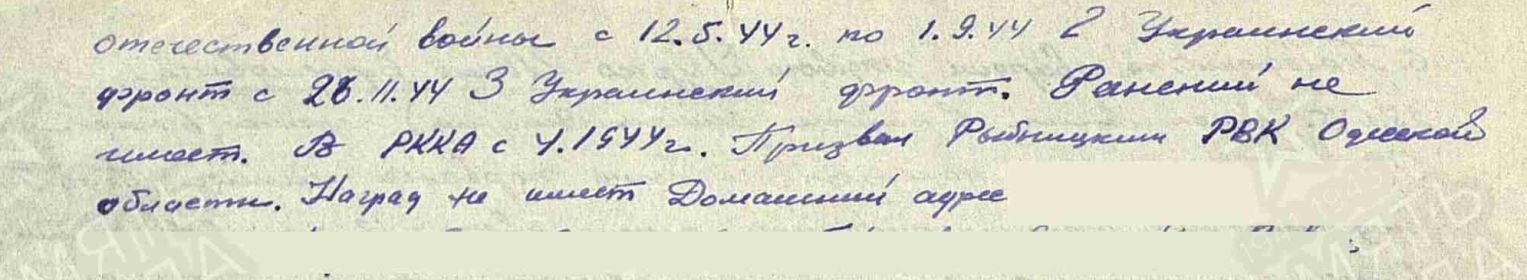 отечественной войны с 12.5.44 г. по 1.9.44 2 Украинский
фронт с 28.11.44 3 Украинский фронт. Ранений не
имеет. В РККА с 4.1944 г. Призван Рыбницким РВК Одесской
области. Наград не имеет Домашний адрес